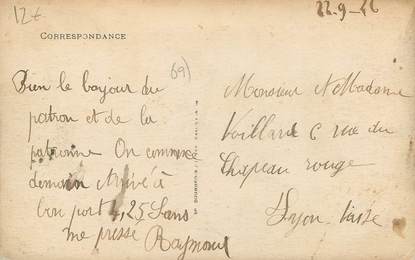 12€
22-9-26
CORRESPONDANCE
69)
Bien le bonjour du
patron et de la
patronne On commence
demain Arrivé à
bon port 4,25 Sans
me presse Raymond
Monsieur et Madame
Vaillant 6 rue du
Chapeau rouge
Lyon Vaise